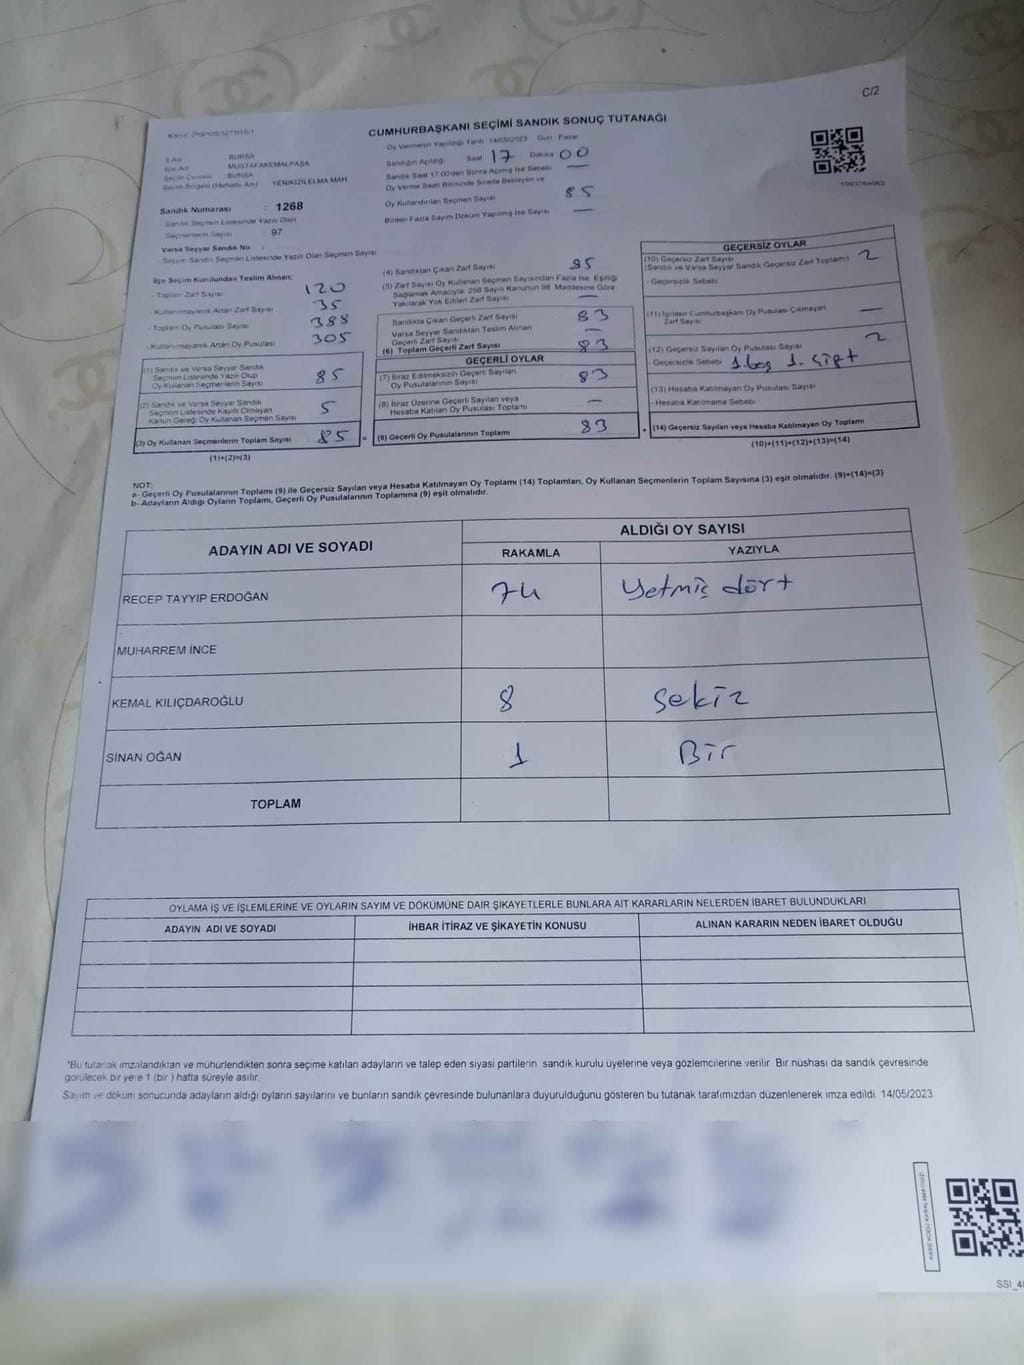 C/2
CUMHURBAŞKANI SEÇİMİ SANDIK SONUÇ TUTANAĞI
Oy Vermenin Yapıldığı Tarih 14/05/2023 Gün Pazar
İl Adı BURSA
İlçe Adı MUSTAFAKEMALPAŞA
Seçim Çevresi : BURSA
Seçim Bölgesi (Mahalle Adı) YENİKIZILELMA MAH
Sandık Numarası : 1268
- Sandık Seçmen Listesinde Yazılı Olan
Seçmenlerin Sayısı : 97
Varsa Seyyar Sandık No :
- Seyyar Sandık Seçmen Listesinde Yazılı Olan Seçmen Sayısı
Sandığın Açıldığı Saat 17 Dakika 00
Sandık Saat 17:00'den Sonra Açılmış İse Sebebi —
Oy Verme Saati Bitiminde Sırada Bekleyen ve
Oy Kullandırılan Seçmen Sayısı 85
Birden Fazla Sayım Döküm Yapılmış İse Sayısı —
İlçe Seçim Kurulundan Teslim Alınan:
- Toplam Zarf Sayısı 120
- Kullanılmayarak Artan Zarf Sayısı 35
- Toplam Oy Pusulası Sayısı 388
- Kullanılmayarak Artan Oy Pusulası 305
(1) Sandık ve Varsa Seyyar Sandık
Seçmen Listesinde Yazılı Olup
Oy Kullanan Seçmenlerin Sayısı 85
(2) Sandık ve Varsa Seyyar Sandık
Seçmen Listesinde Kayıtlı Olmayan
Kanun Gereği Oy Kullanan Seçmen Sayısı 5
(3) Oy Kullanan Seçmenlerin Toplam Sayısı 85 =
(1)+(2)=(3)
(4) Sandıktan Çıkan Zarf Sayısı 85
(5) Zarf Sayısı Oy Kullanan Seçmen Sayısından Fazla İse, Eşitliği
Sağlamak Amacıyla; 298 Sayılı Kanunun 98. Maddesine Göre
Yakılarak Yok Edilen Zarf Sayısı —
Sandıkta Çıkan Geçerli Zarf Sayısı 83
Varsa Seyyar Sandıktan Teslim Alınan
Geçerli Zarf Sayısı —
(6) Toplam Geçerli Zarf Sayısı 83
GEÇERLİ OYLAR
(7) İtiraz Edilmeksizin Geçerli Sayılan
Oy Pusulalarının Sayısı 83
(8) İtiraz Üzerine Geçerli Sayılan veya
Hesaba Katılan Oy Pusulası Toplamı —
(9) Geçerli Oy Pusulalarının Toplamı 83 +
GEÇERSİZ OYLAR
(10) Geçersiz Zarf Sayısı
(Sandık ve Varsa Seyyar Sandık Geçersiz Zarf Toplamı) 2
- Geçersizlik Sebebi
(11) İçinden Cumhurbaşkanı Oy Pusulası Çıkmayan
Zarf Sayısı —
(12) Geçersiz Sayılan Oy Pusulası Sayısı 2
- Geçersizlik Sebebi 1. boş 1. çift
(13) Hesaba Katılmayan Oy Pusulası Sayısı
- Hesaba Katılmama Sebebi
(14) Geçersiz Sayılan veya Hesaba Katılmayan Oy Toplamı
(10)+(11)+(12)+(13)=(14)
NOT:
a- Geçerli Oy Pusulalarının Toplamı (9) ile Geçersiz Sayılan veya Hesaba Katılmayan Oy Toplamı (14) Toplamları, Oy Kullanan Seçmenlerin Toplam Sayısına (3) eşit olmalıdır. (9)+(14)=(3)
b- Adayların Aldığı Oyların Toplamı, Geçerli Oy Pusulalarının Toplamına (9) eşit olmalıdır.
ADAYIN ADI VE SOYADI ALDIĞI OY SAYISI
RAKAMLA YAZIYLA
RECEP TAYYIP ERDOĞAN 74 Yetmiş dört
MUHARREM İNCE
KEMAL KILIÇDAROĞLU 8 Sekiz
SİNAN OĞAN 1 Bir
TOPLAM
OYLAMA İŞ VE İŞLEMLERİNE VE OYLARIN SAYIM VE DÖKÜMÜNE DAİR ŞİKAYETLERLE BUNLARA AİT KARARLARIN NELERDEN İBARET BULUNDUKLARI
ADAYIN ADI VE SOYADI İHBAR İTİRAZ VE ŞİKAYETİN KONUSU ALINAN KARARIN NEDEN İBARET OLDUĞU
*Bu tutanak imzalandıktan ve mühürlendikten sonra seçime katılan adayların ve talep eden siyasi partilerin sandık kurulu üyelerine veya gözlemcilerine verilir. Bir nüshası da sandık çevresinde
görülecek bir yere 1 (bir ) hafta süreyle asılır.
Sayım ve döküm sonucunda adayların aldığı oyların sayılarını ve bunların sandık çevresinde bulunanlara duyurulduğunu gösteren bu tutanak tarafımızdan düzenlenerek imza edildi. 14/05/2023